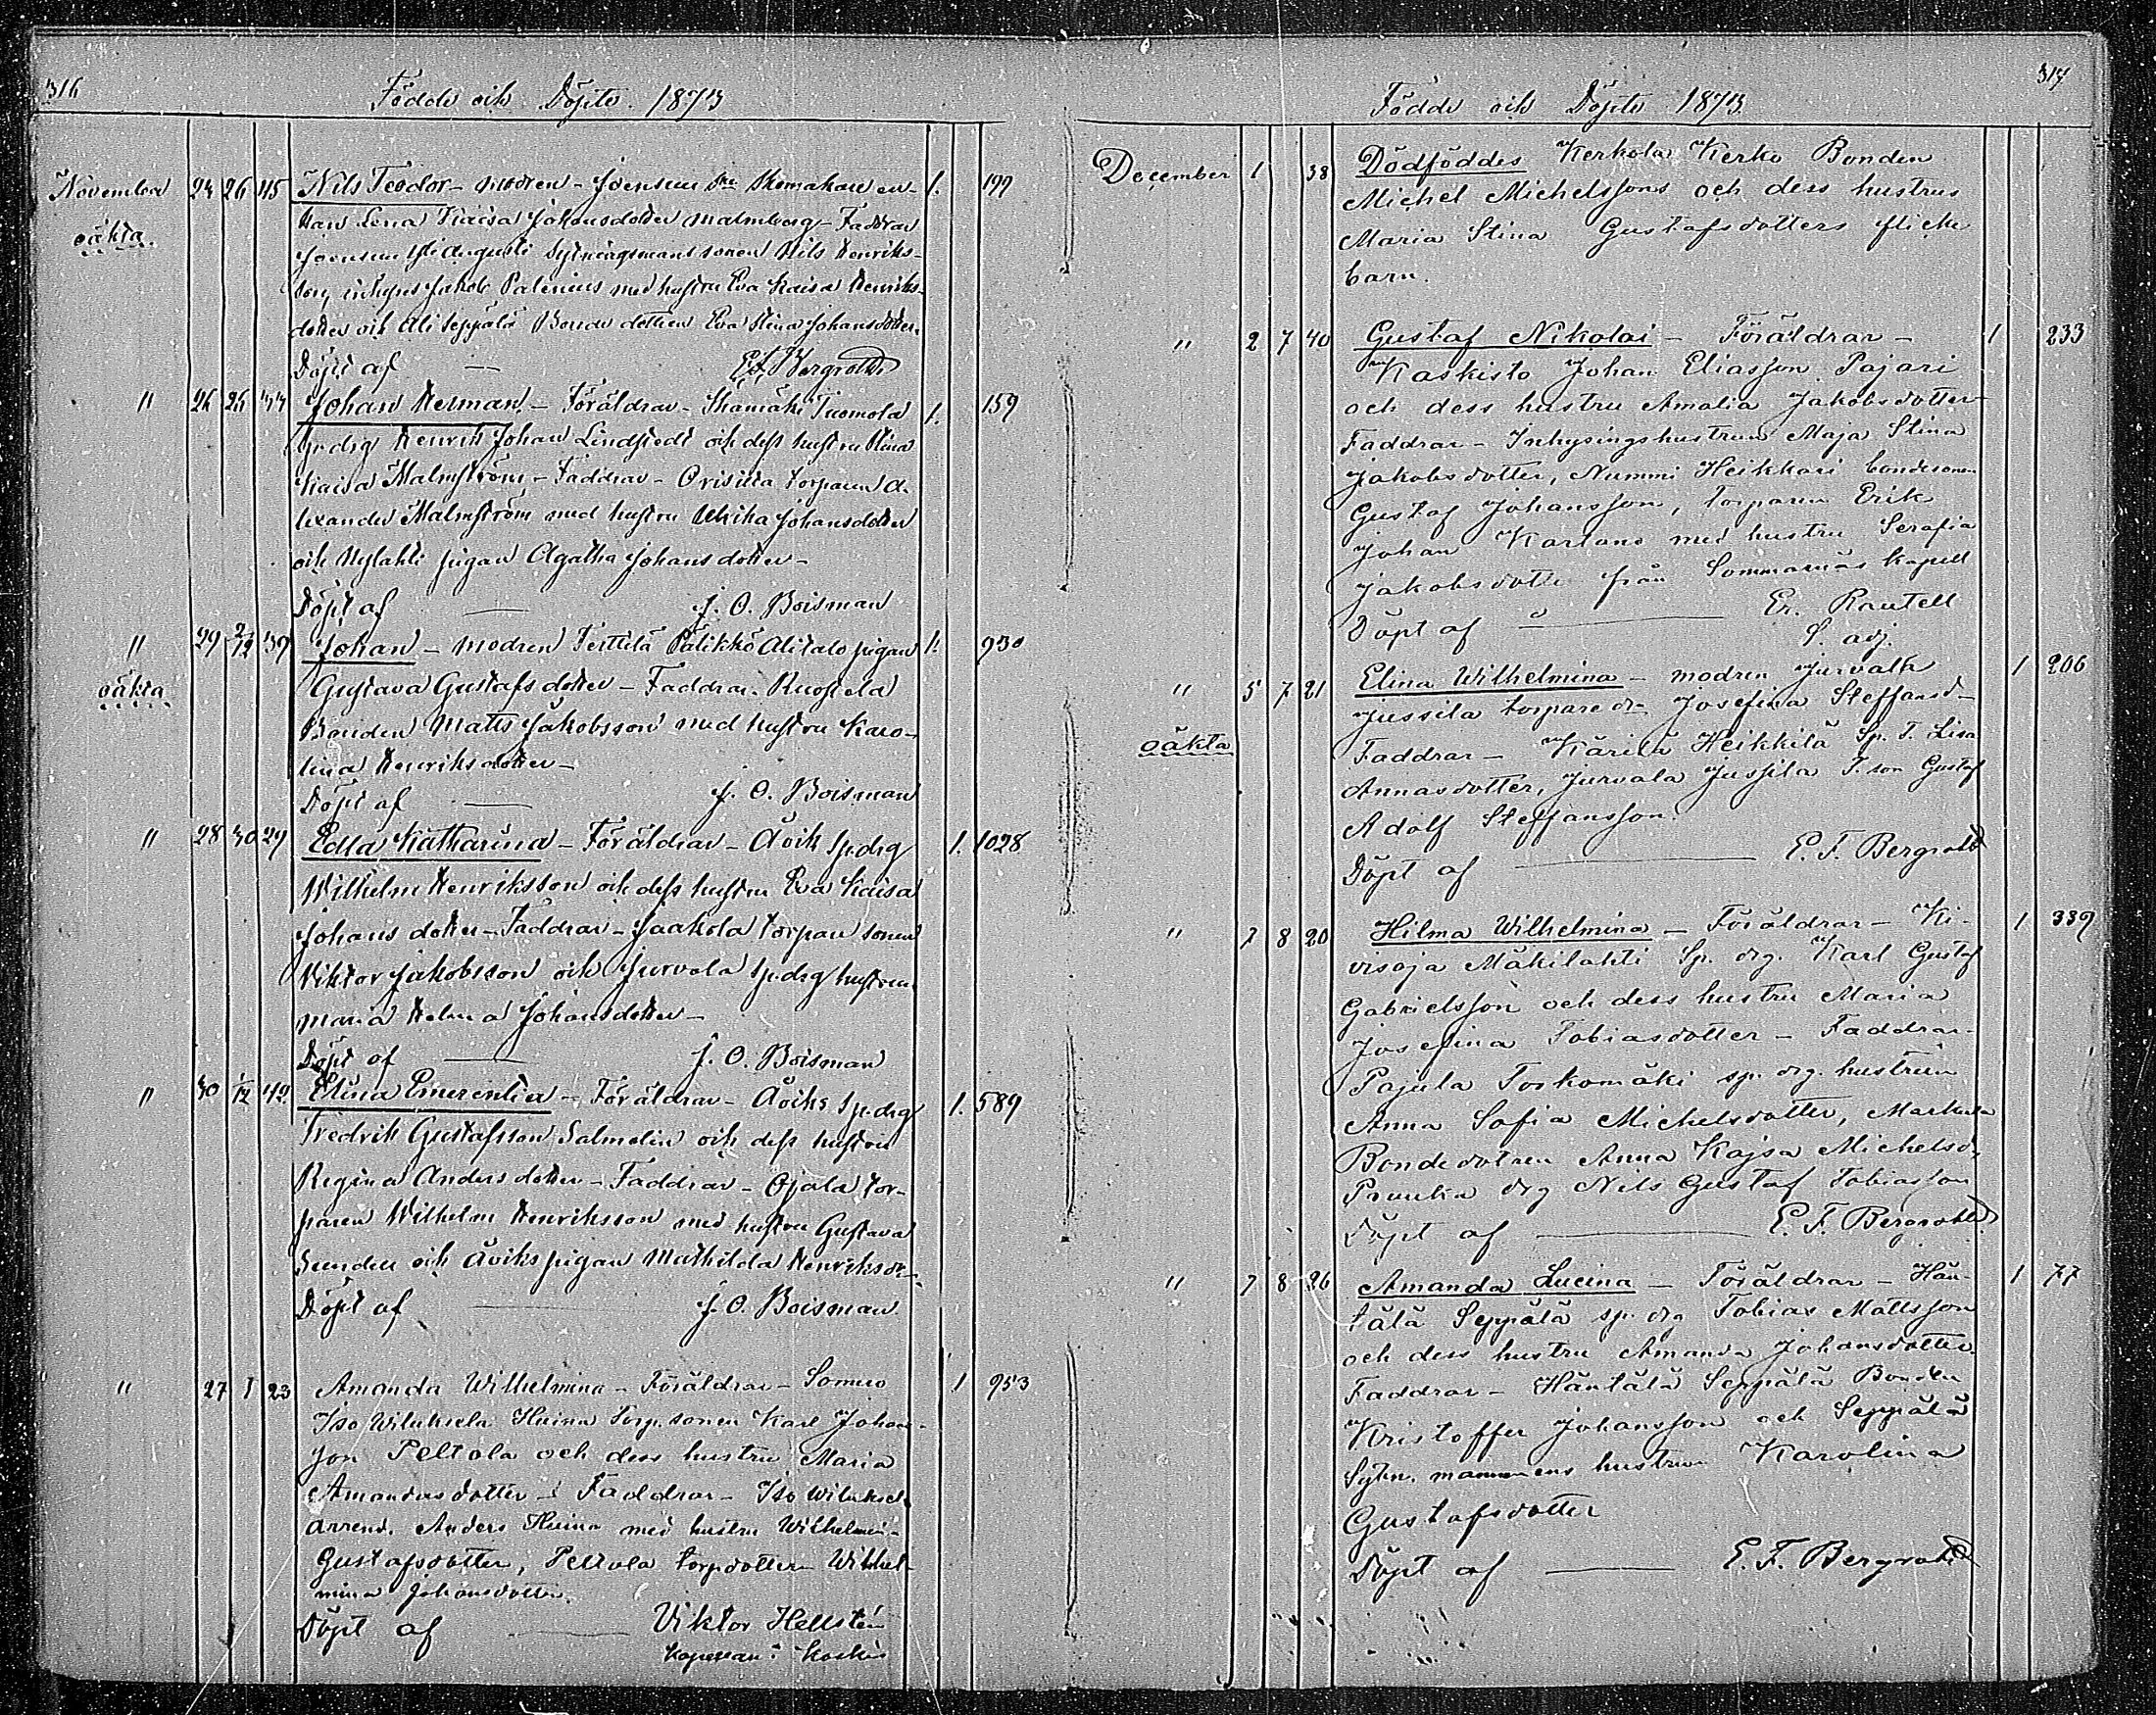 316
Födde och Döpte 1873
November 24 26 45 Nils Teodor – modren – Joensuu en-
oäkta. kan Lena Kaisa Johansdotter Malmberg – Faddrar 1. 199
Joensuu Yli Augusti Sytningsmans sonen Nils Henriks-
son, inhyses Jakob Palenius med hustru Eva Kaisa Henriks-
dotter och Ali Seppälä Bonde dottren Eva Stina Johansdotter.
Döpt af — E. F. Bergroth
" 26 26 33 Johan Herman. – Föräldrar – Tuomola 1. 159
Henrik Johan Lindstedt och dess hustru Stina
Kaisa Malmström – Faddrar – torparen A-
lexander Malmström med hustru Ulrika Johansdotter
och pigan Agatha Johansdotter –
Döpt af — J. O. Boisman
" 29 2/12 39 Johan – modren Terttilä Palikkö Alitalo pigan 1. 930
oäkta Gustava Gustafsdotter – Faddrar. Ruostela
Bonden Matts Jakobsson med hustru Karo-
lina Henriksdotter –
Döpt af — J. O. Boisman
" 28 30 29 Edla Katharina – Föräldrar – Åvik sp.drg 1. 1028
Wilhelm Henriksson och dess hustru Eva Kaisa
Johans dotter – Faddrar – Jaakola torpare sonen
Viktor Jakobsson och Jurvala sp.drg hustrun
Maria Helena Johansdotter –
Döpt af — J. O. Boisman
" 30 1/12 42 Elina Emerentia – Föräldrar – Åviks sp.drg 1. 589
Fredrik Gustafsson Salmelin och dess hustru
Regina Andersdotter – Faddrar – Ojala tor-
paren Wilhelm Henriksson med hustru Gustava
och Åviks pigan Mathilda Henriksdr –
Döpt af — J. O. Boisman
" 27 1 23 Amanda Wilhelmina – Föräldrar – Somero 1 953
Iso Wiluksela Heina torp.sonen Karl Johans-
son Peltola och dess hustru Maria
Amandusdotter – Faddrar – Iso Wiluksela
arrend. Anders Heina med hustru Wilhelmin-
Gustafsdotter, Peltola torp.dottern Wilhel-
mina Johansdotter.
Döpt af — Viktor Hellstén
kapellan i Koskis
317
Födde och Döpte 1873
December 1 38 Dödföddes Kerkola Kerko Bonden
Michel Michelssons och dess hustrus
Maria Stina Gustafsdotters flicke
barn.
" 2 7 40 Gustaf Nikolai – Föräldrar – 1 233
Kaskisto Johan Eliasson Pajari
och dess hustru Amalia Jakobsdotter –
Faddrar – Inhysingshustrun Maja Stina
Jakobsdotter, Nummi Heikkari bondesonen
Gustaf Johansson, torparen Erik
Johan Karland med hustru Serafia
Jakobsdotter från Sommarnäs kapell
Döpt af — Er. Rautell
S. adj.
" 5 7 21 Elina Wilhelmina – modren Jurvala 1 206
Jussila torpare dr. Josefina Steffansd –
oäkta Faddrar – Kärilä Heikkilä Sp. T. Lisa
Annasdotter, Jurvala Jussila T. son Gustaf
Adolf Steffansson.
Döpt af — E. F. Bergroth
" 7 8 20 Hilma Wilhelmina – Föräldrar – Ki- 1 339
visoja Mäkilahti Sp. drg. Karl Gustaf
Gabrielsson och dess hustru Maria
Josefina Tobiasdotter – Faddrar –
Pajula Torkomäki sp. drg. hustrun
Anna Sofia Michelsdotter, Markula
Bondedotren Anna Kajsa Michelsd,
drg Nils Gustaf Tobiasson
Döpt af — E. F. Bergroth
" 7 8 26 Amanda Lucina – Föräldrar – Hän- 1 77
tälä Seppälä sp. drg Tobias Mattsson
och dess hustru Amanda Johansdotter.
Faddrar – Häntälä Seppälä Bonden
Kristoffer Johansson och Seppälä
Sytn. mannens hustru Karolina
Gustafsdotter
Döpt af — E. F. Bergroth